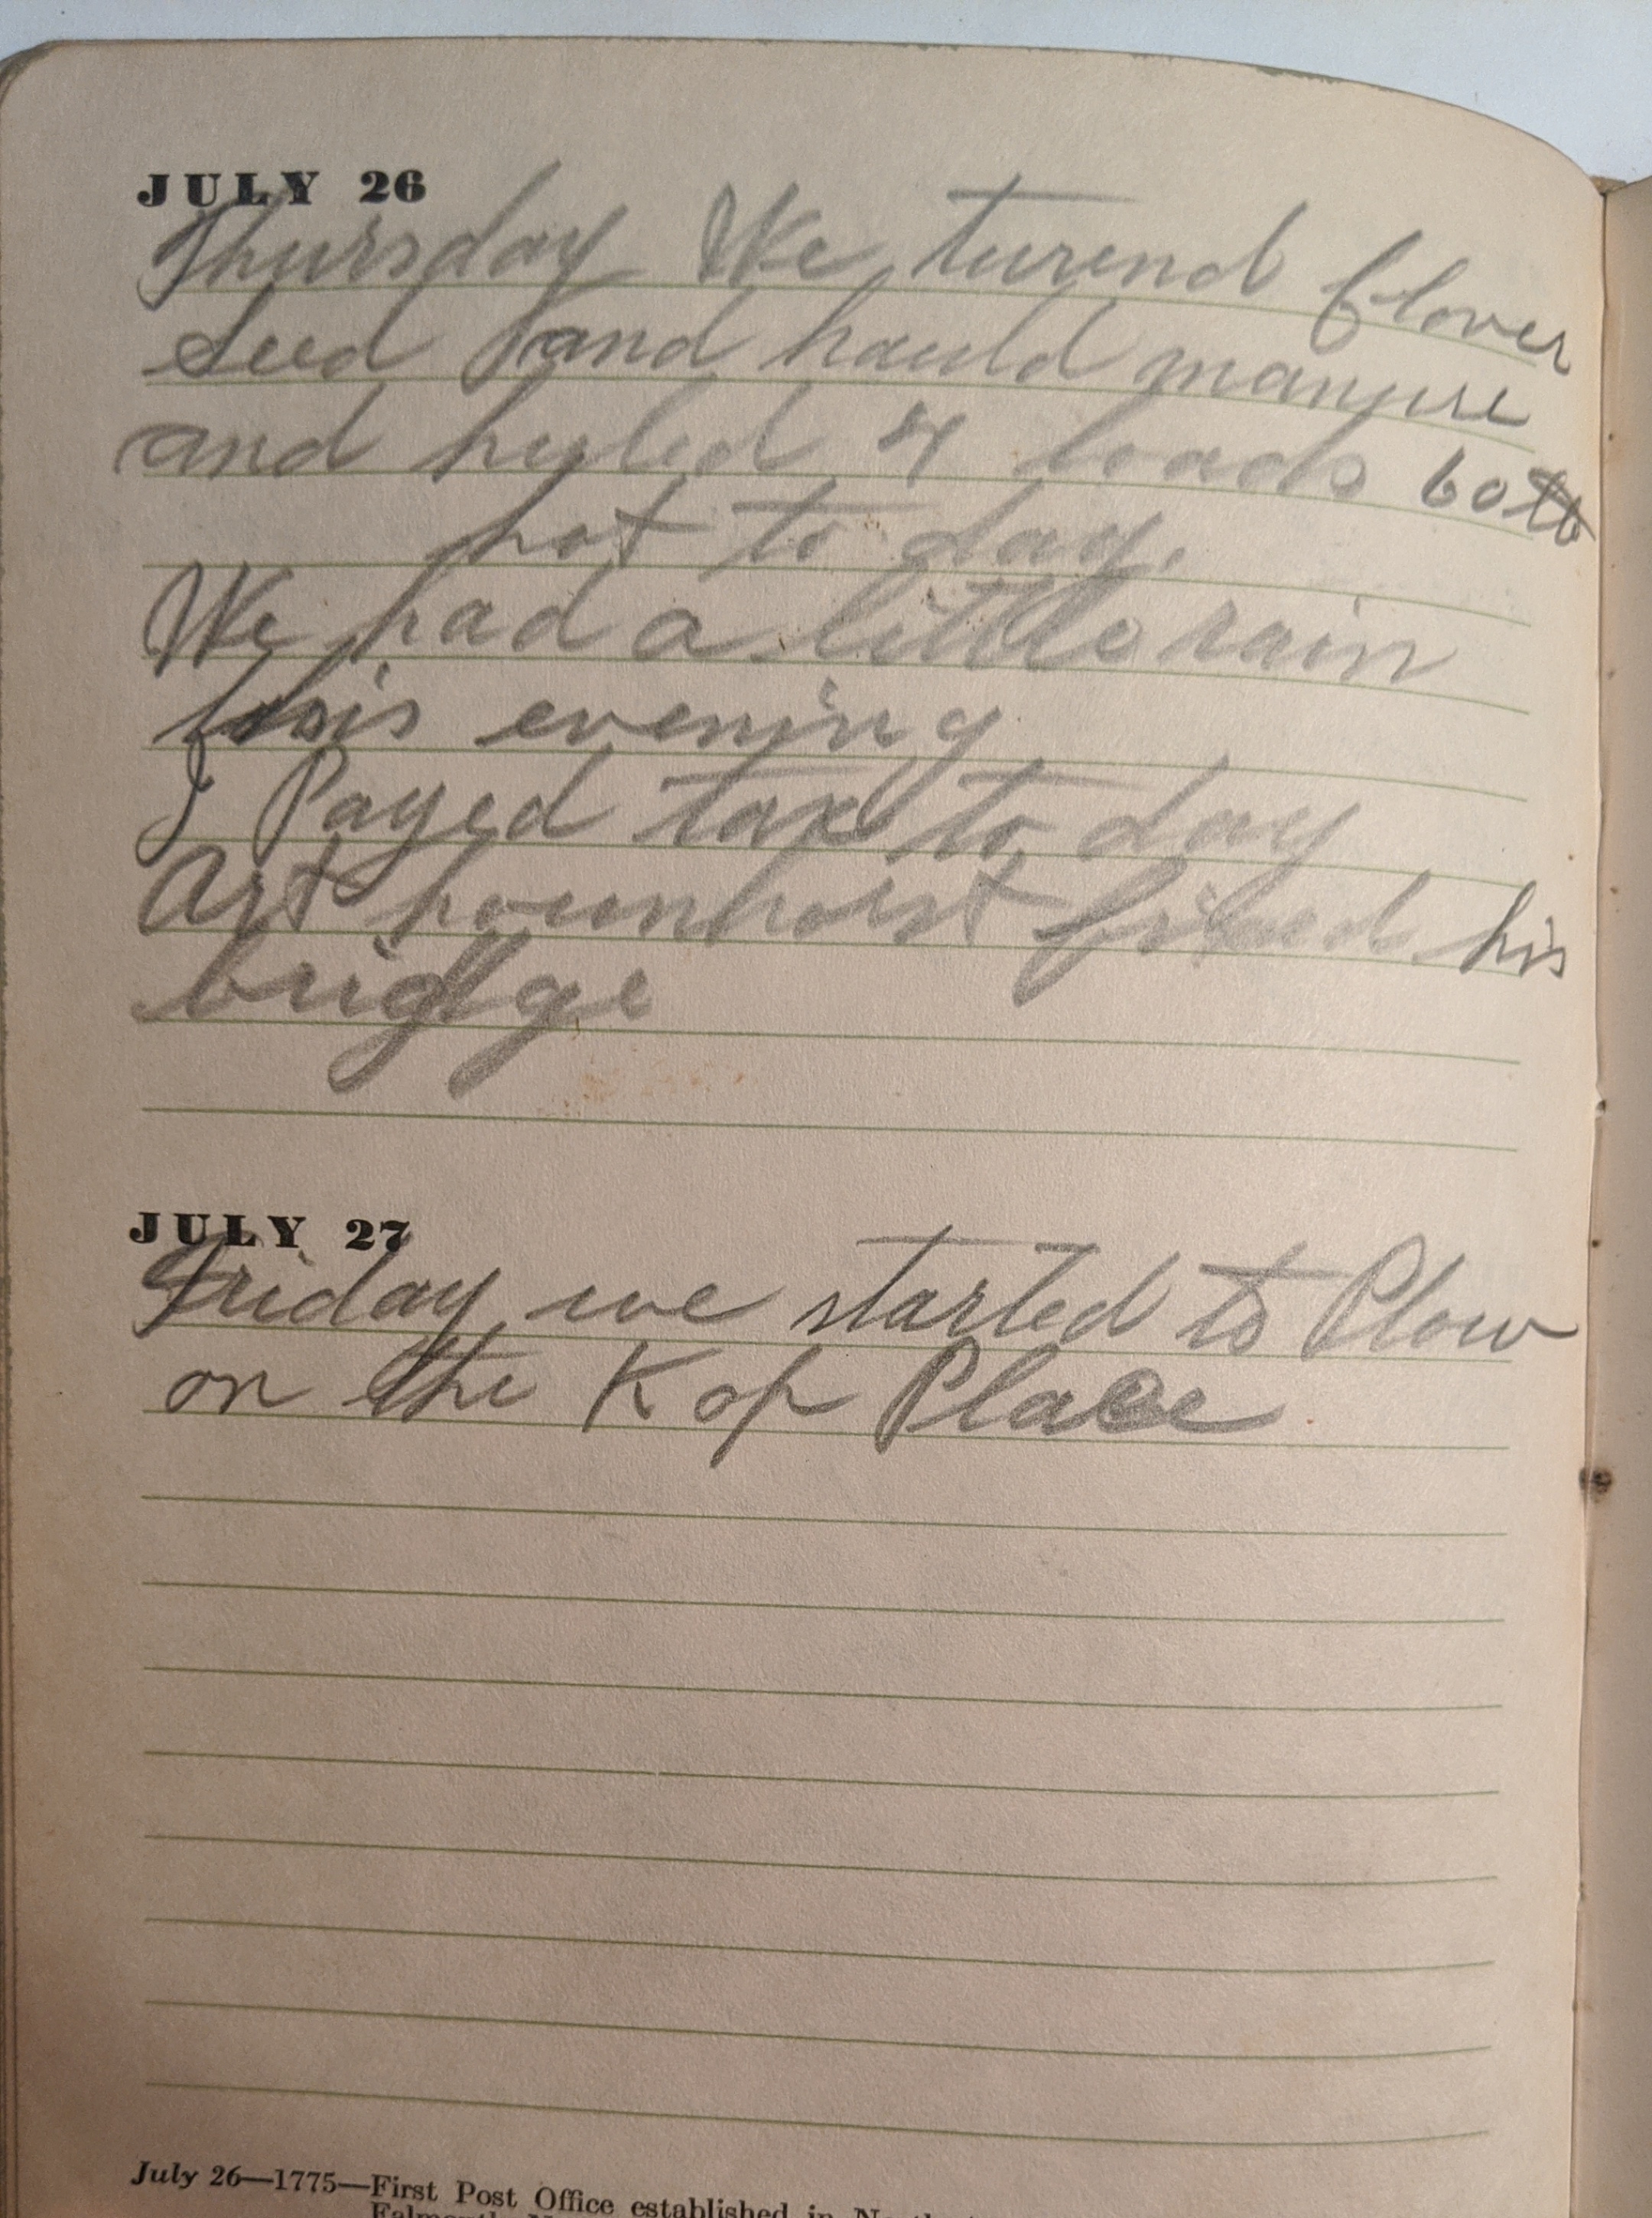 JULY 26
Thursday We turend Clover
Seed and hauld manure
and hyled 4 loads
hot to day.
We had a little rain
this evening
I Payed tax to day
Art hounhorst fixed his
bridge
JULY 27
Friday we started to Plow
on the Kop Place
July 26—1775—First Post Office established in